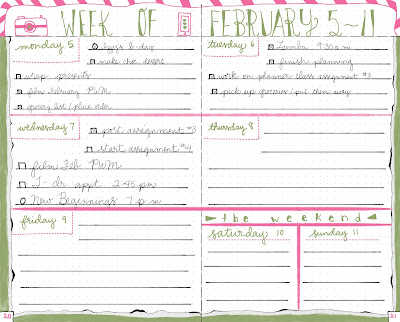 WEEK OF FEBRUARY 5~11
monday 5
b-day
make choc desert
wrap presents
film February PWM
grocery list / place order
tuesday 6
Zumba 9:30 a.m
finish planning
work on planner class assignment #3
pick up groceries / put them away
wednesday 7
post assignment #3
start assignment #4
film Feb PWM
J- dr appt 2:45 pm
New Beginnings 7 p.m
thursday 8
friday 9
the weekend
saturday 10
sunday 11
20
21